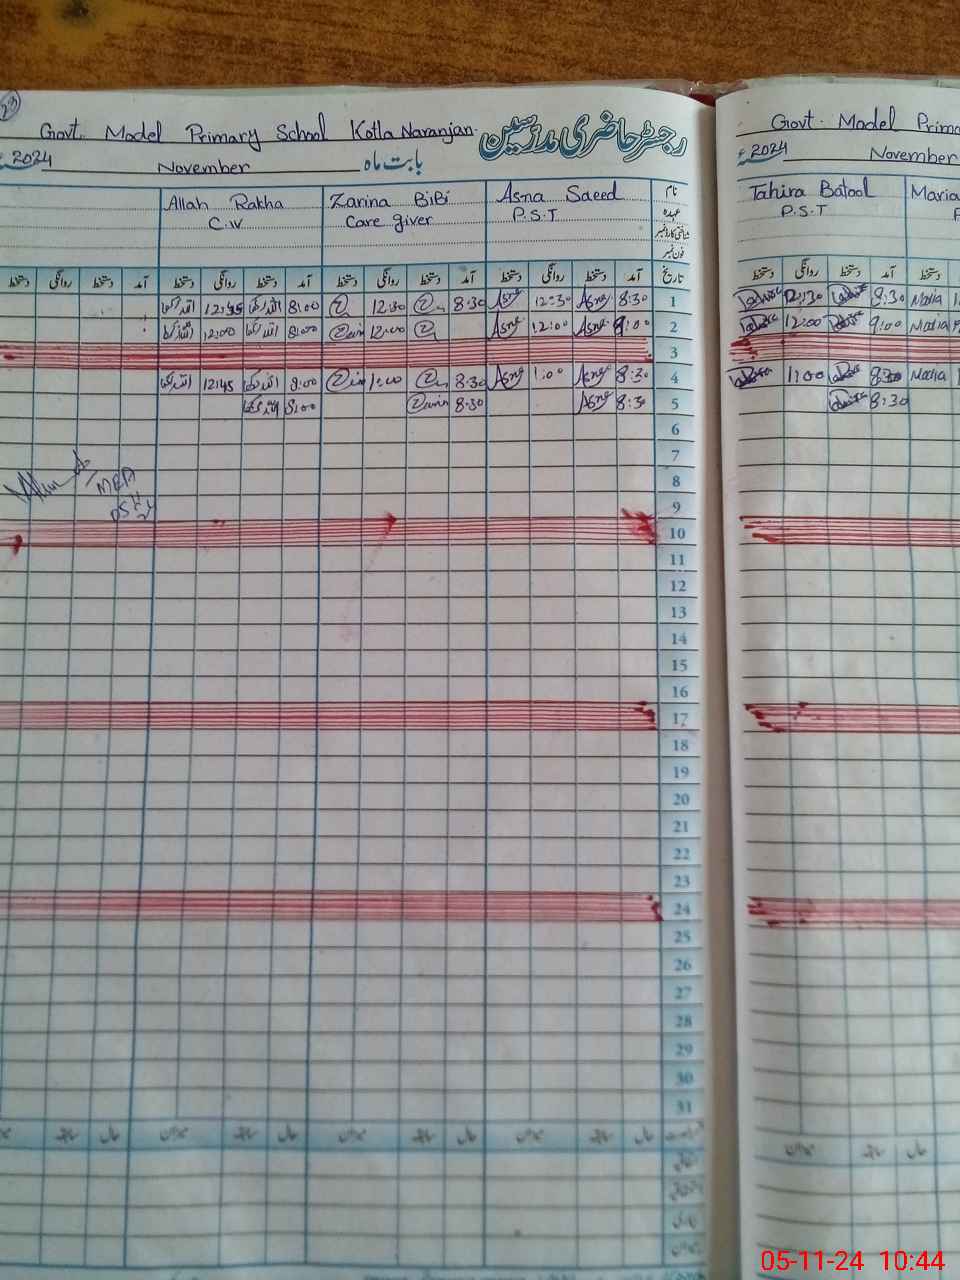 23
Govt. Model Primary School Kotla Naranjan
رجسٹر حاضری مدرسین
2024 November بابت ماه
Allah Rakha Zarina BiBi Asna Saeed نام
C.IV Care giver P.S.T عہدہ
شناختی کارڈ نمبر
فون نمبر
دستخط روانگی دستخط آمد دستخط روانگی دستخط آمد دستخط روانگی دستخط آمد دستخط روانگی دستخط آمد تاریخ
12:45 8:00 12:30 8:30 Asna 12:30 Asna 8:30 1
12:00 8:00 12:00 Asna 12:00 Asna 9:00 2
3
12:45 8:00 1:00 8:30 Asna 1:00 Asna 8:30 4
8:00 8:30 Asna 8:30 5
6
7
8
9
10
11
12
13
14
15
16
17
18
19
20
21
22
23
24
25
26
27
28
29
30
31
میزان سابقہ حال میزان سابقہ حال میزان سابقہ حال
MEA
Govt. Model Prima
2024 November
Tahira Batool Maria
P.S.T P
دستخط روانگی دستخط آمد دستخط
12:30 8:30 Maria
12:00 9:00 Maria
1:00 8:30 Maria
8:30
میزان سابقہ حال
05-11-24 10:44